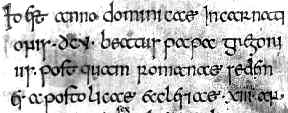 Id est anno dominicae Incarnati
onis .dcv. beatus papa gregori
us. post quam romanae sedem
& apostolicae ecclesiae .xiii. an